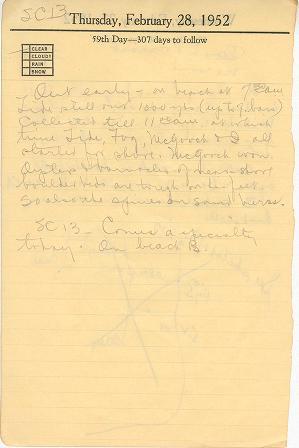 SC13
Thursday, February 28, 1952
59th Day—307 days to follow
CLEAR
CLOUDY
RAIN
SNOW
Out early - on beach at 7
tide still out 1500 yds (up to g. bars)
Collected till 11 at which
time Tide, Fog, McGooch & I all
started for shore. McGooch won.
Oysters & barnacles of near-shore
boulder beds are tough on the feet.
So also the spines on some
SC 13 - Conus a specialty
today. On beach B.